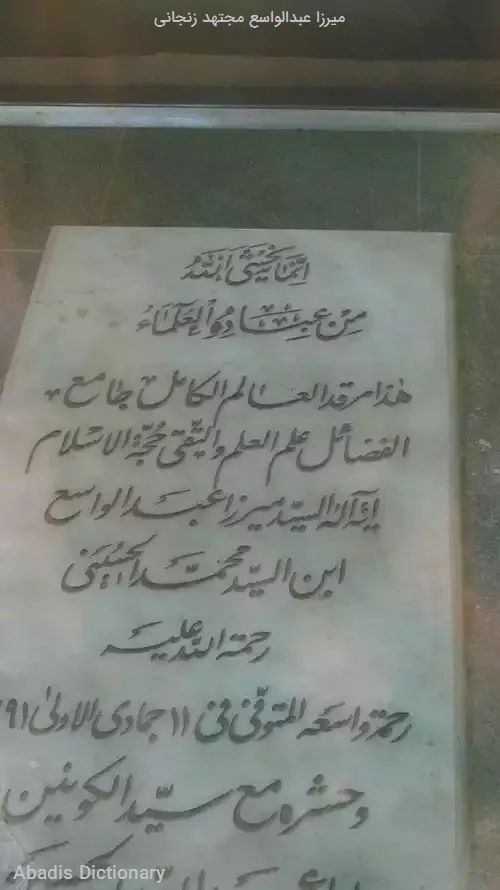 میرزا عبدالواسع مجتهد زنجانی
اِنَّمَا یَخْشَی اللهَ
مِنْ عِبَادِهِ الْعُلَمَاءُ
هذا مرقد العالم الکامل جامع
الفضائل علم العلم والتقی حُجّة الاسلام
آیة الله السیّد میرزا عبدالواسع
ابن السیّد محمّد الحسینی
رحمة الله علیه
رحمة واسعه المتوفّی فی ۱۱ جمادی الاولی ۹۱
وحشره مع سیّد الکونین
Abadis Dictionary